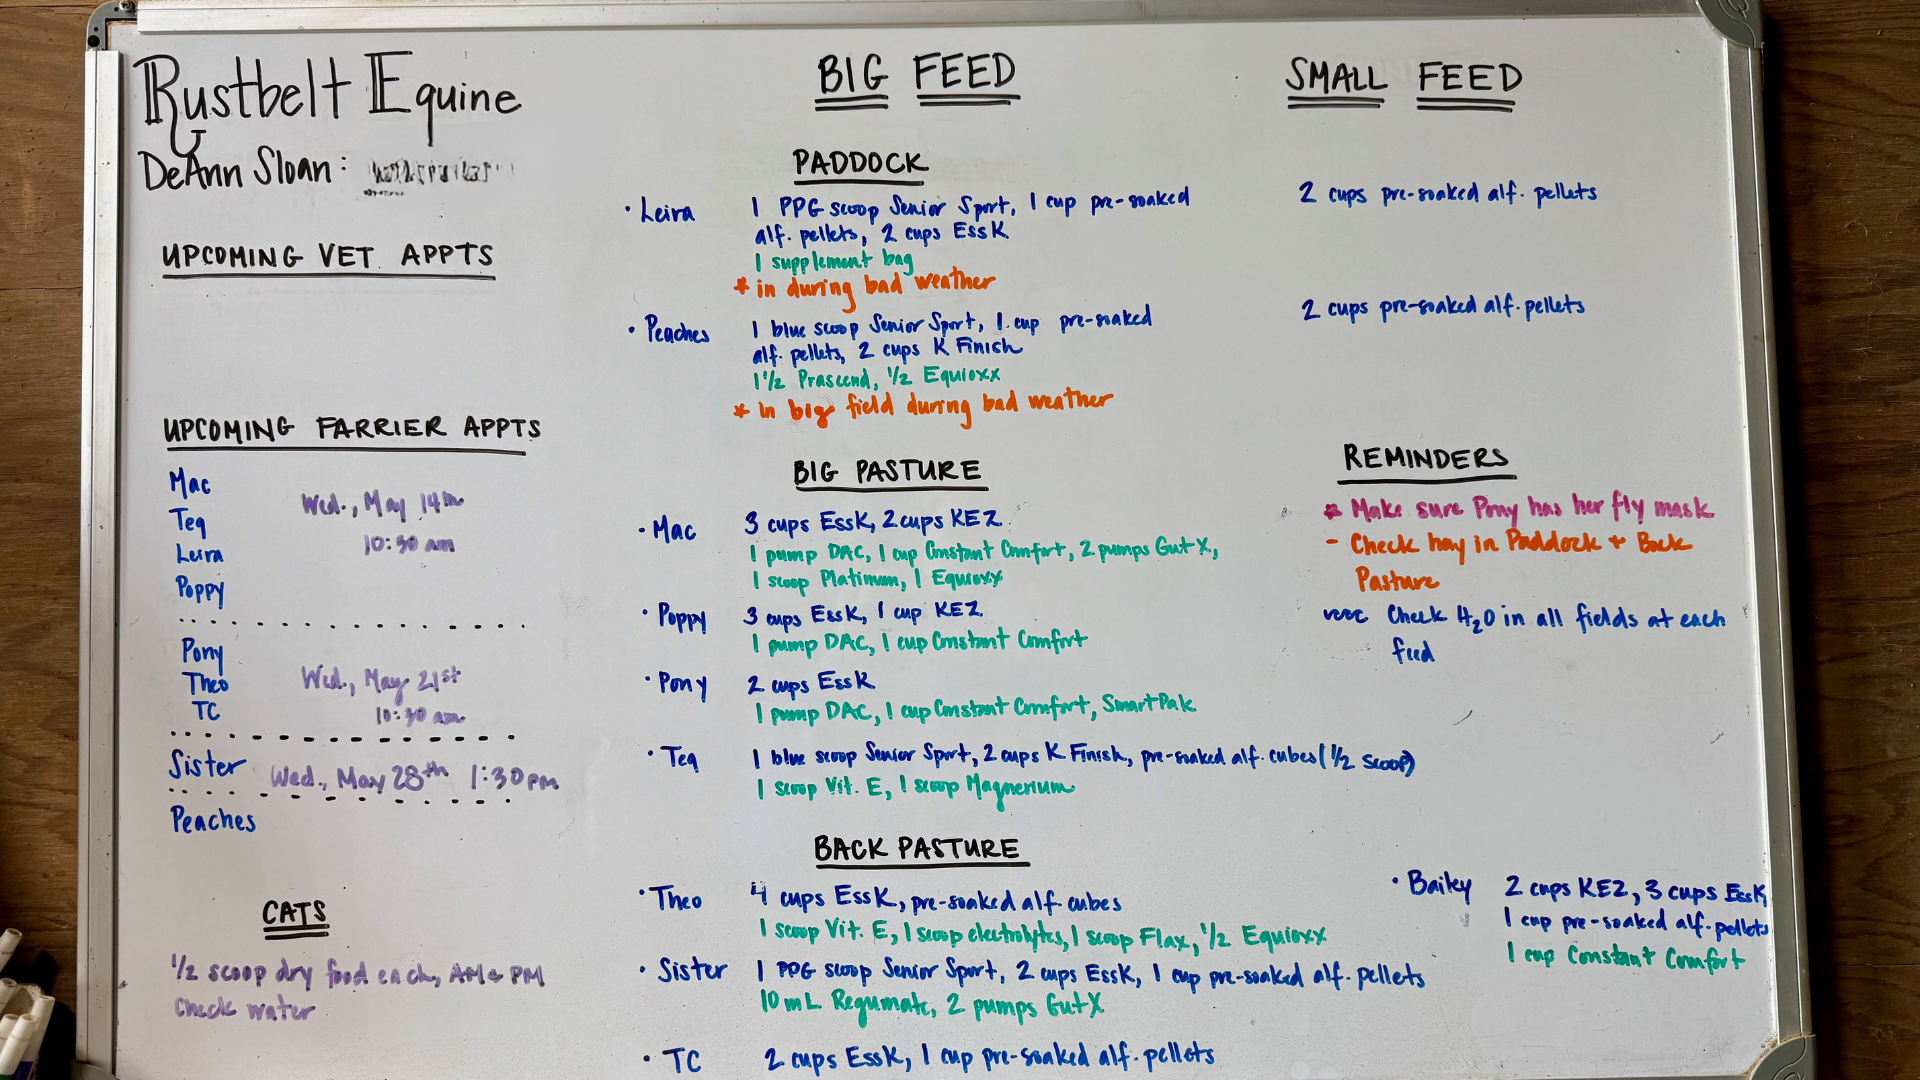 Rustbelt Equine
DeAnn Sloan:
UPCOMING VET APPTS
UPCOMING FARRIER APPTS
Mac
Teq
Leira
Poppy
Wed., May 14th
10:30 am
Pony
Theo
TC
Wed., May 21st
10:30 am
Sister Wed., May 28th 1:30pm
Peaches
CATS
1/2 scoop dry food each, AM & PM
Check water
BIG FEED
PADDOCK
· Leira 1 PPG scoop Senior Sport, 1 cup pre-soaked
alf. pellets, 2 cups EssK
1 supplement bag
* in during bad weather
· Peaches 1 blue scoop Senior Sport, 1 cup pre-soaked
alf. pellets, 2 cups K Finish
1 1/2 Prascend, 1/2 Equioxx
* in big field during bad weather
BIG PASTURE
· Mac 3 cups EssK, 2 cups KEZ
1 pump DAC, 1 cup Constant Comfort, 2 pumps Gut X,
1 scoop Platinum, 1 Equioxx
· Poppy 3 cups EssK, 1 cup KEZ
1 pump DAC, 1 cup Constant Comfort
· Pony 2 cups EssK
1 pump DAC, 1 cup Constant Comfort, SmartPak
· Teq 1 blue scoop Senior Sport, 2 cups K Finish, pre-soaked alf. cubes (1/2 scoop)
1 scoop Vit. E, 1 scoop Magnesium
BACK PASTURE
· Theo 4 cups EssK, pre-soaked alf. cubes
1 scoop Vit. E, 1 scoop electrolytes, 1 scoop Flax, 1/2 Equioxx
· Sister 1 PPG scoop Senior Sport, 2 cups EssK, 1 cup pre-soaked alf. pellets
10 mL Regumate, 2 pumps Gut X
· TC 2 cups EssK, 1 cup pre-soaked alf. pellets
SMALL FEED
2 cups pre-soaked alf. pellets
2 cups pre-soaked alf. pellets
REMINDERS
* Make sure Pony has her fly mask
- Check hay in Paddock + Back
Pasture
Check H₂O in all fields at each
feed
· Bailey 2 cups KEZ, 3 cups EssK,
1 cup pre-soaked alf. pellets
1 cup Constant Comfort